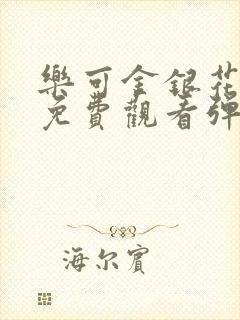 樂可金銀花
免費觀看彈
海尔賓